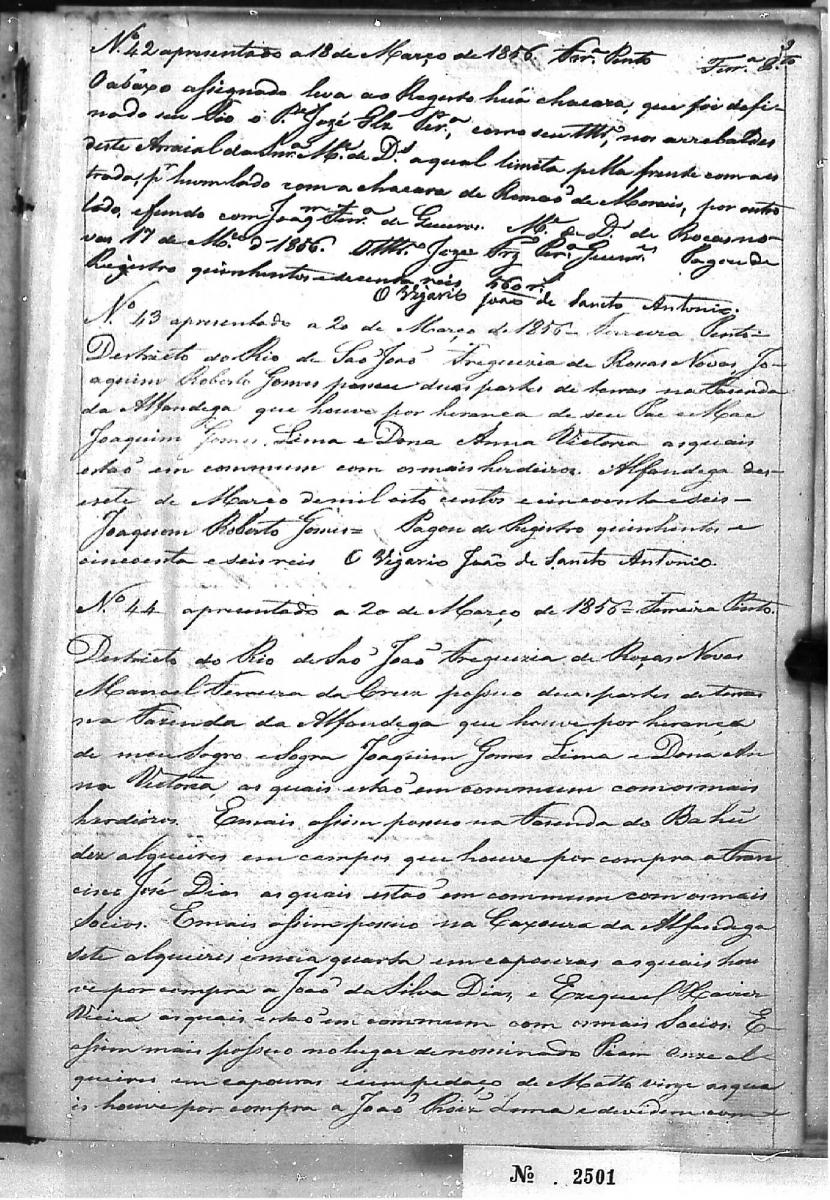 Nº 42 apresentado a 18 de Março de 1856. Ferrª Pinto
Ferrª Pto
O abaxo assignado leva ao Registo huã chacara, que foi defi-
nado seu Tio o Pe José Glz Perª, como seu Ttrº, nos arrebaldes
deste Arraial da Snrª Me de Ds a qual limita pella frente com a es
trada, pr hum lado com a chacara de Romaõ de Morais, por outro
lado, e fundo com Joaqm Ferrª de Gouvea. Me de Ds de Roças no-
vas 17 de Mço d 1856. O Ttrº Joze Perª Guims Pagou de
Registro quinhentos e secenta reis 560 rs
O Vigario João de Santo Antonio.
Nº 43 apresentado a 20 de Março de 1856 = Ferreira Pinto =
Destricto do Rio de Saõ Joaõ Freguezia de Rossas Novas, Jo-
aquim Roberto Gomes possue duas partes de terras na Fazenda
da Alfandega que houve por herança de seu Pae e Mae
Joaquim Gomes Lima e Dona Anna Victoria as quais
estaõ em commum com os mais herdeiros. Alfandega des-
esete de Março de mil oito centos e cincoenta e seis =
Joaquim Roberto Gomes = Pagou de Registro quinhentos e
cincoenta e seis reis O Vigario João de Santo Antonio.
Nº 44 apresentado a 20 de Março de 1856 = Ferreira Pinto.
Destricto do Rio de Saõ Joaõ Freguezia de Roças Novas
Manoel Ferreira da Cruz possuo duas partes de terras
na Fazenda da Alfandega que houve por herança
de meu Sogro e Sogra Joaquim Gomes Lima e Dona An
na Victoria as quais estaõ em commum com os mais
herdeiros. E mais assim possuo na Fazenda do Bahú
dez alqueires em campos que houve por compra a Fran
cisco José Dias as quais estaõ em commum com os mais
Socios. E mais assim possuo na Caxoura da Alfandega
sete alqueires e meia quarta em capouras as quais hou
ve por compra a Joaõ da Silva Dias, e Ezequiel Xavier
Vieira as quais estaõ em commum com os mais Socios. E
assim mais possuo no lugar denominado onze al-
queires em capouras e um pedaço de Matto virge as qua
is houve por compra a Joaõ Roiz Lima e devidem com =
Nº . 2501